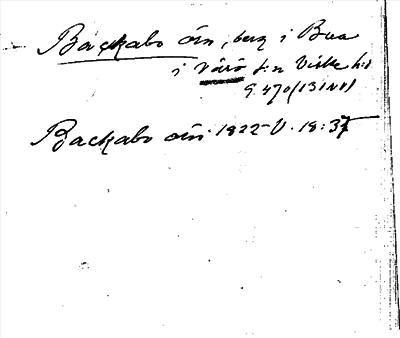 Backabo örn, berg i Bua
i Värö s:n Viske h:d
G 470 (13 NV)
Backabo örn 1822 V. 18:37